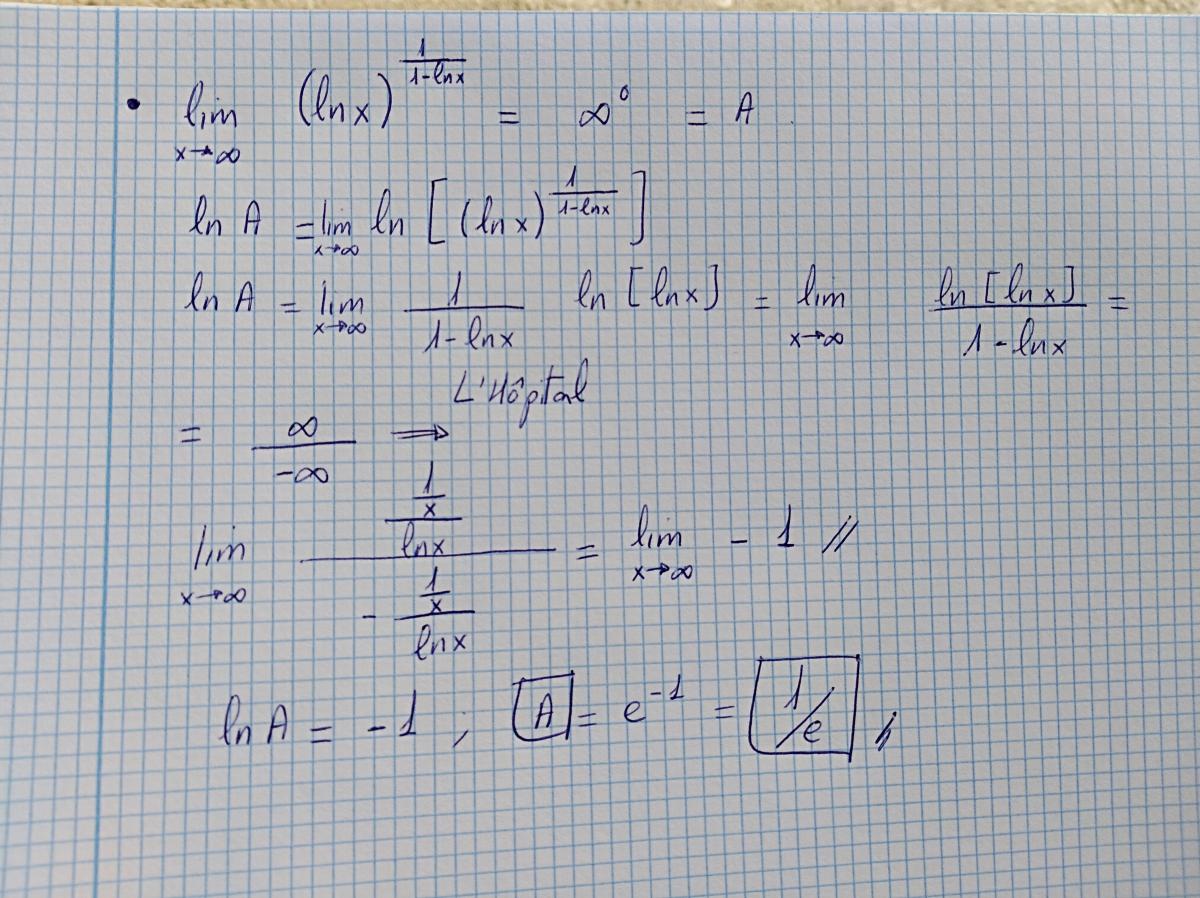 • lim x→∞ (ln x)^(1/(1-ln x)) = ∞^0 = A
ln A = lim x→∞ ln [(ln x)^(1/(1-ln x))]
ln A = lim x→∞ 1/(1-ln x) ln [ln x] = lim x→∞ ln [ln x]/(1-ln x) =
= ∞/-∞ ⟹ L'Hôpital
lim x→∞ ((1/x)/(ln x))/(-(1/x)/(ln x)) = lim x→∞ -1 //
ln A = -1 ; A = e^-1 = 1/e //